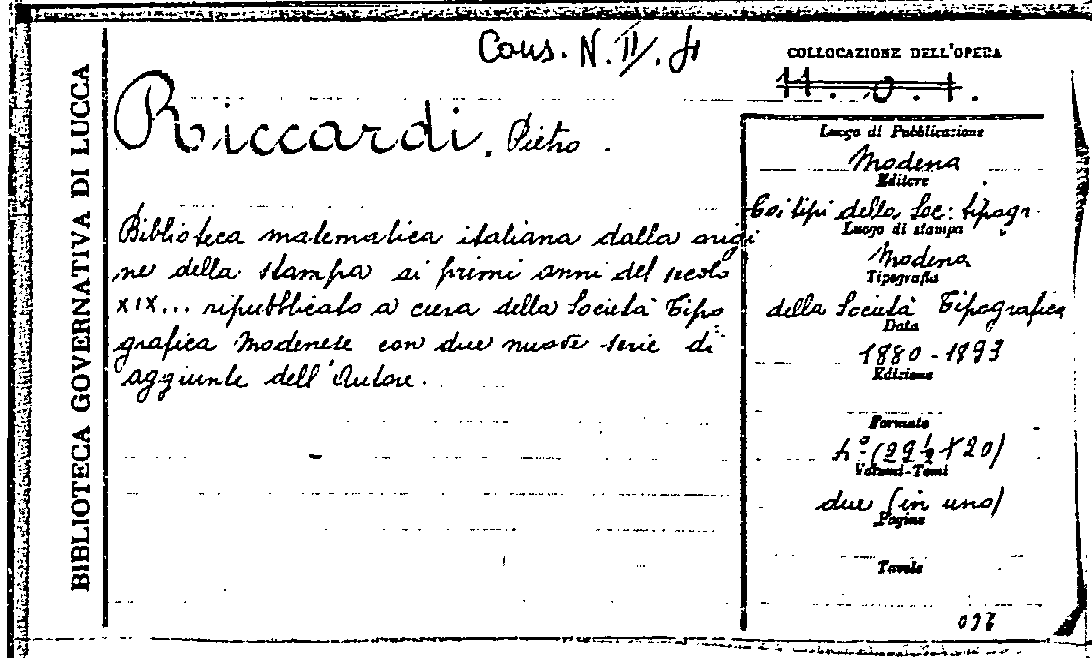 BIBLIOTECA GOVERNATIVA DI LUCCA
Cons. N. II. 4
COLLOCAZIONE DELL'OPERA
11. 0. 1.
Riccardi, Pietro.
Biblioteca matematica italiana dalla origi
ne della stampa ai primi anni del secolo
XIX... ripubblicato a cura della Società Tipo
grafica Modenese con due nuove serie di
aggiunte dell'Autore.
Luogo di Pubblicazione
Modena
Editore
Coi tipi della Soc: tipogr.
Luogo di stampa
Modena
Tipografia
della Società Tipografica
Data
1880-1893
Edizione
Formato
4º (29½ x 20)
Volumi-Tomi
due (in uno)
Pagine
Tavole